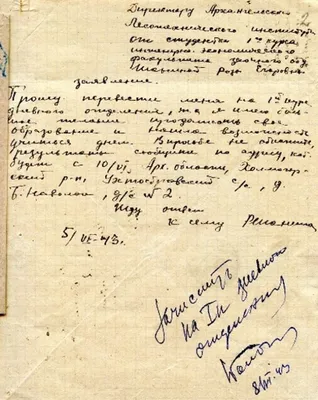 Директору Архангельского
Лесотехнического института
от студентки 1го курса
инженерно экономического
факультета заочного отд.
заявление.
Прошу перевести меня на 1ый курс
дневного отделения, т.к. я имею боль-
шое желание продолжать своё
образование и нашла возможность
учиться днём. В просьбе не отказать,
результаты сообщить по адресу, кот.
будет с 10/VI, Арх. области, Холмогор-
ский р-н, с/с, д.
Б. Наволок, д/с № 2.
Жду ответ
К сему
5/VI-43.
Зачислить
на I к дневного
отделения
8/VI.43